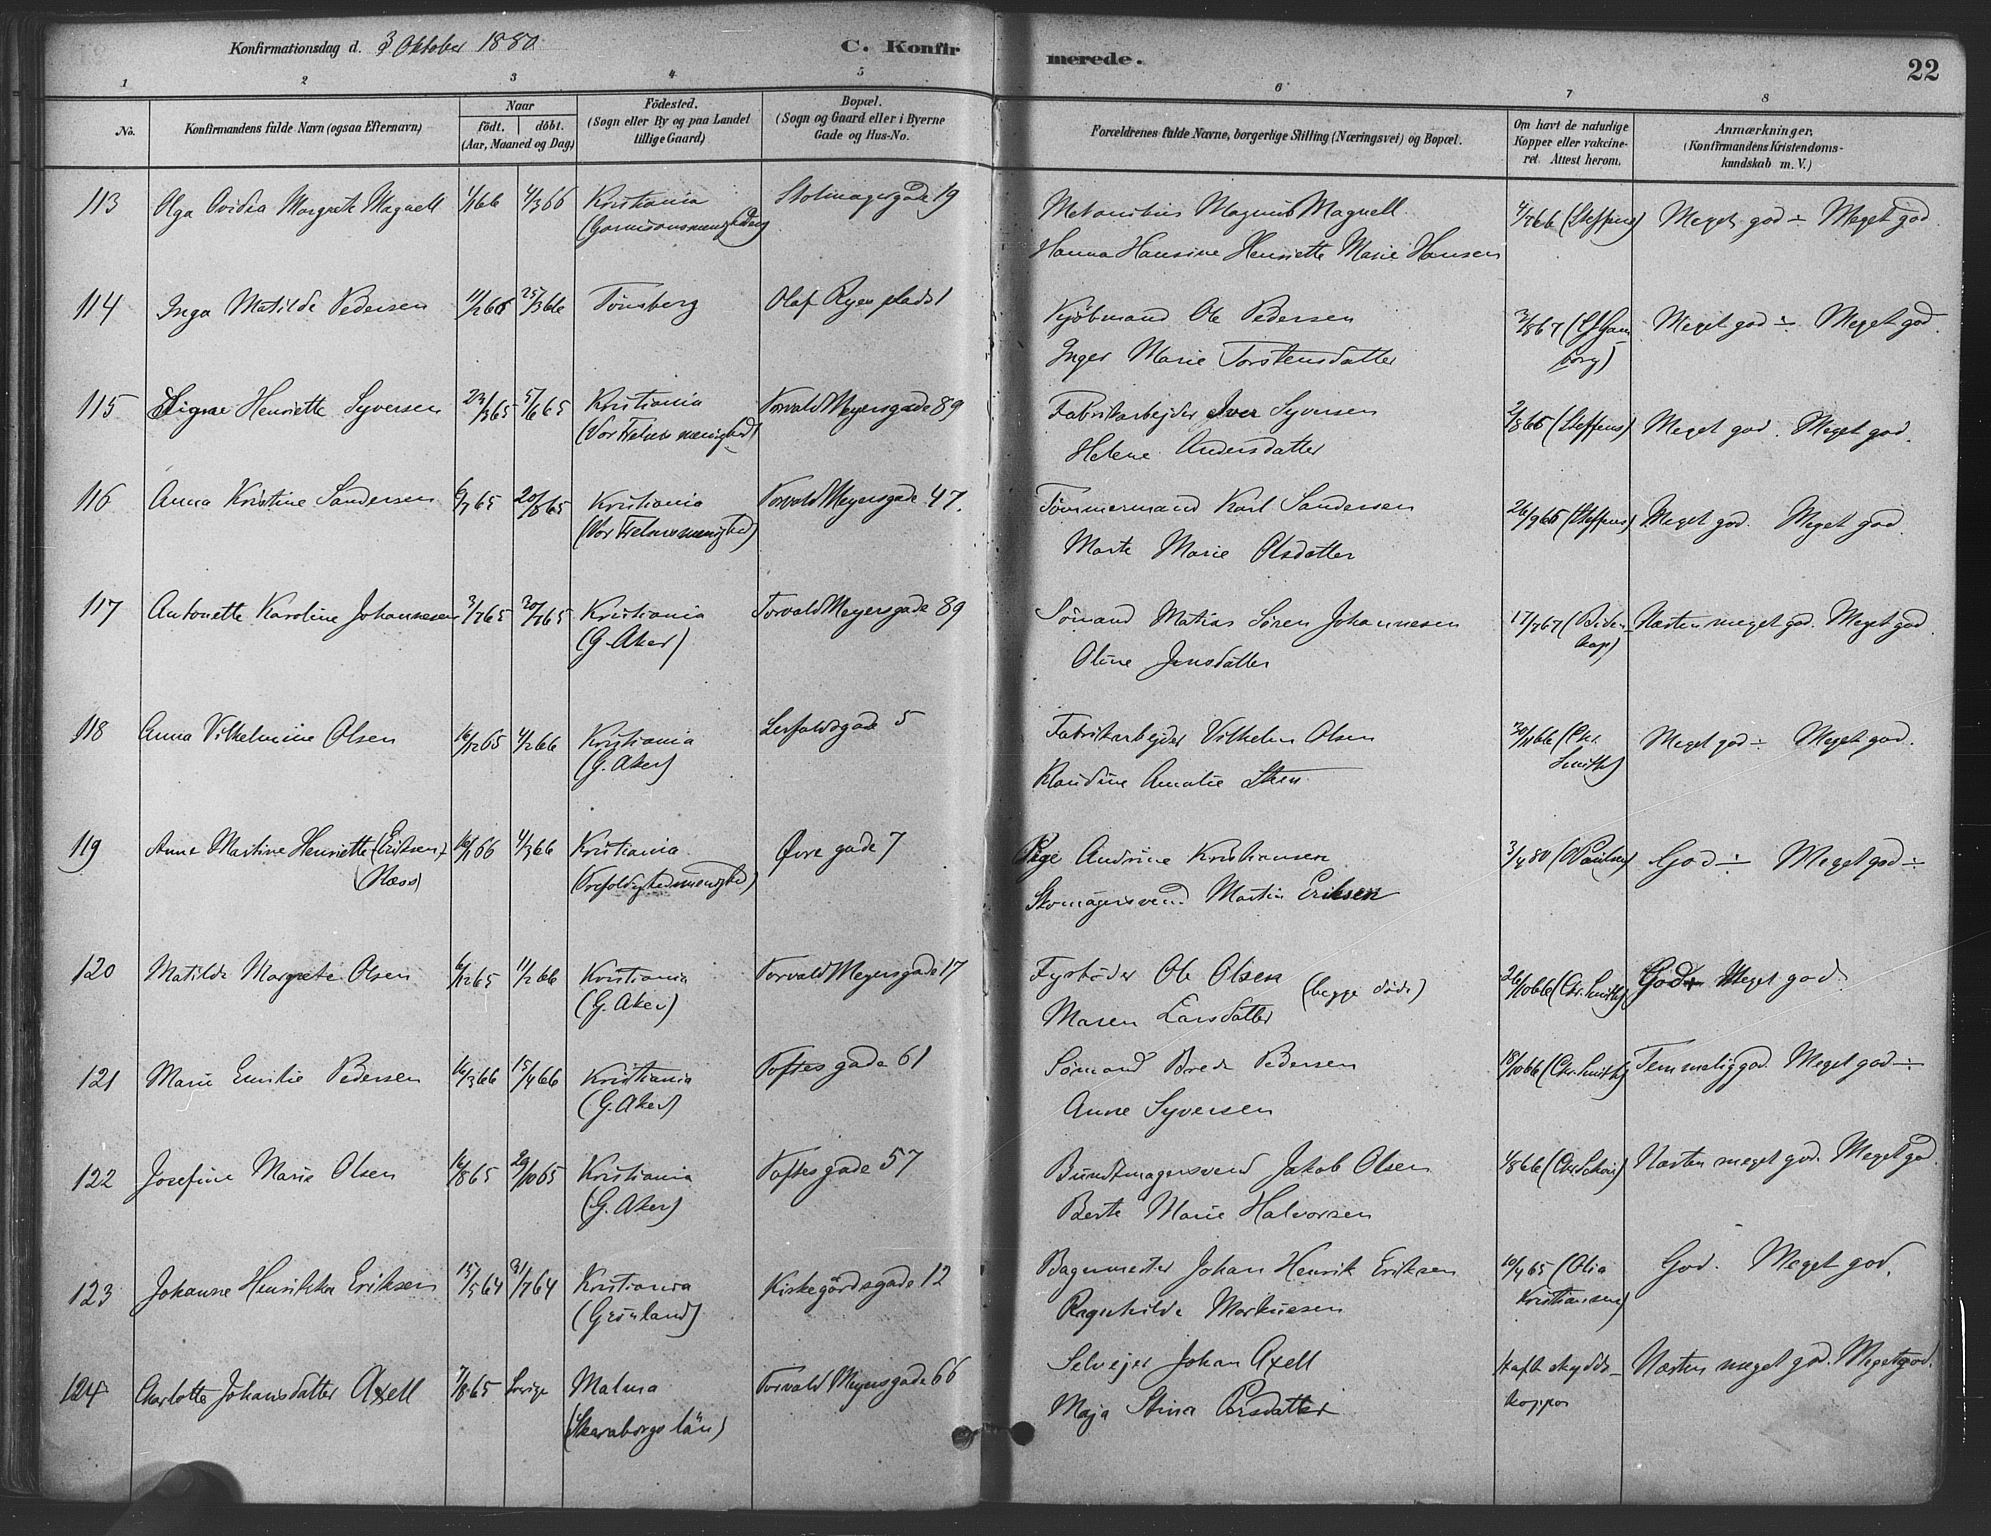 Konfirmationsdag d. 3 Oktober 1880
C. Konfirmerede.
22
1 2 3 4 5 6 7 8
No.
Konfirmandens fulde Navn (ogsaa Efternavn)
Naar
födt. döbt.
(Aar, Maaned og Dag)
Födested.
(Sogn eller By og paa Landet
tillige Gaard)
Bopæl.
(Sogn og Gaard eller i Byerne
Gade og Hus-No.
Forældrenes fulde Navne, borgerlige Stilling (Næringsvei) og Bopæl.
Om havt de naturlige
Kopper eller vakcine-
ret. Attest herom.
Anmærkninger.
(Konfirmandens Kristendoms-
kundskab m. V.)
113 Olga Margrete Magnell 4/3 66 Kristiania 19 Magnus Magnell 4/7 66 (Steffens) Meget god ÷ Meget god
(Garnisonsmenigheden) Hanna Hansine Henriette Marie Hansen
114 Inga Matilde Pedersen 11/2 66 25/3 66 Tønsberg Olaf Ryes plads 1 Kjøbmand Ole Pedersen Meget god ÷ Meget god.
Inger Marie Torstensdatter borg)
115 Signe Henriette Syversen 23/3 65 5/6 65 Kristiania Torvald Meyersgade 89 Fabrikarbejder Iver Syversen 2/8 66 (Steffens) Meget god. Meget god.
(Vor Frelsers menighed) Helene Andersdatter
116 Anna Kristine Sandersen 6/7 65 20/8 65 Kristiania Torvald Meyersgade 47. Tømmermand Karl Sandersen 26/9 65 (Steffens) Meget god. Meget god.
(Vor Frelsers menighed) Marte Marie Olsdatter
117 Antonette Karoline Johannesen 3/7 65 30/7 65 Kristiania Torvald Meyersgade 89 Sømand Matias Søren Johannesen 17/7 67 (Biden- Næsten meget god. Meget god
(G. Aker) Oline Jensdatter kap)
118 Anna Vilhelmine Olsen 16/12 65 4/2 66 Kristiania 5 Fabrikarbejder Vilhelm Olsen (Chr. Meget god ÷ Meget god.
(G. Aker) Klaudine Amalie Steen Smith)
119 Anne Martine Henriette (Eriksen) 16/1 66 4/3 66 Kristiania Øvre gade 7 Pige Andrine Kristiansen 3/4 80 (Paulsen) God ÷ Meget god ÷
(Næss) (Trefoldighedsmenighed) Skomagersvend Martin Eriksen
120 Matilde Margrete Olsen 6/12 65 11/2 66 Kristiania Torvald Meyersgade 17 Fyrbøder Ole Olsen (begge døde) 26/10 66 (Chr. Smith) God + Meget god.
(G. Aker) Maren Larsdatter
121 Marie Emilie Pedersen 16/3 66 15/4 66 Kristiania Toftes gade 61 Sømand Brede Pedersen 18/10 66 (Chr. Smith) Temmelig god. Meget god ÷
(G. Aker) Anne Syversen
122 Josefine Marie Olsen 16/8 65 29/10 65 Kristiania Toftes gade 57 Bundtmagersvend Jakob Olsen Næsten meget god. Meget god.
(G. Aker) Berte Marie Halvorsen
123 Johanne Henrikka Eriksen 15/5 64 31/7 64 Kristiania Kirkegårdsgade 12 Bagermester Johan Henrik Eriksen 10/4 65 (Olia God. Meget god.
(Grønland) Ragnhilde Markusen Kristiansen)
124 Charlotte Johansdatter Axell 7/8 65 Sverige Malma Torvald Meyersgade 66 Selvejer Johan Axell haft skydds- Næsten meget god. Meget god.
(Skaraborgs län) Maja Stina Persdatter koppor